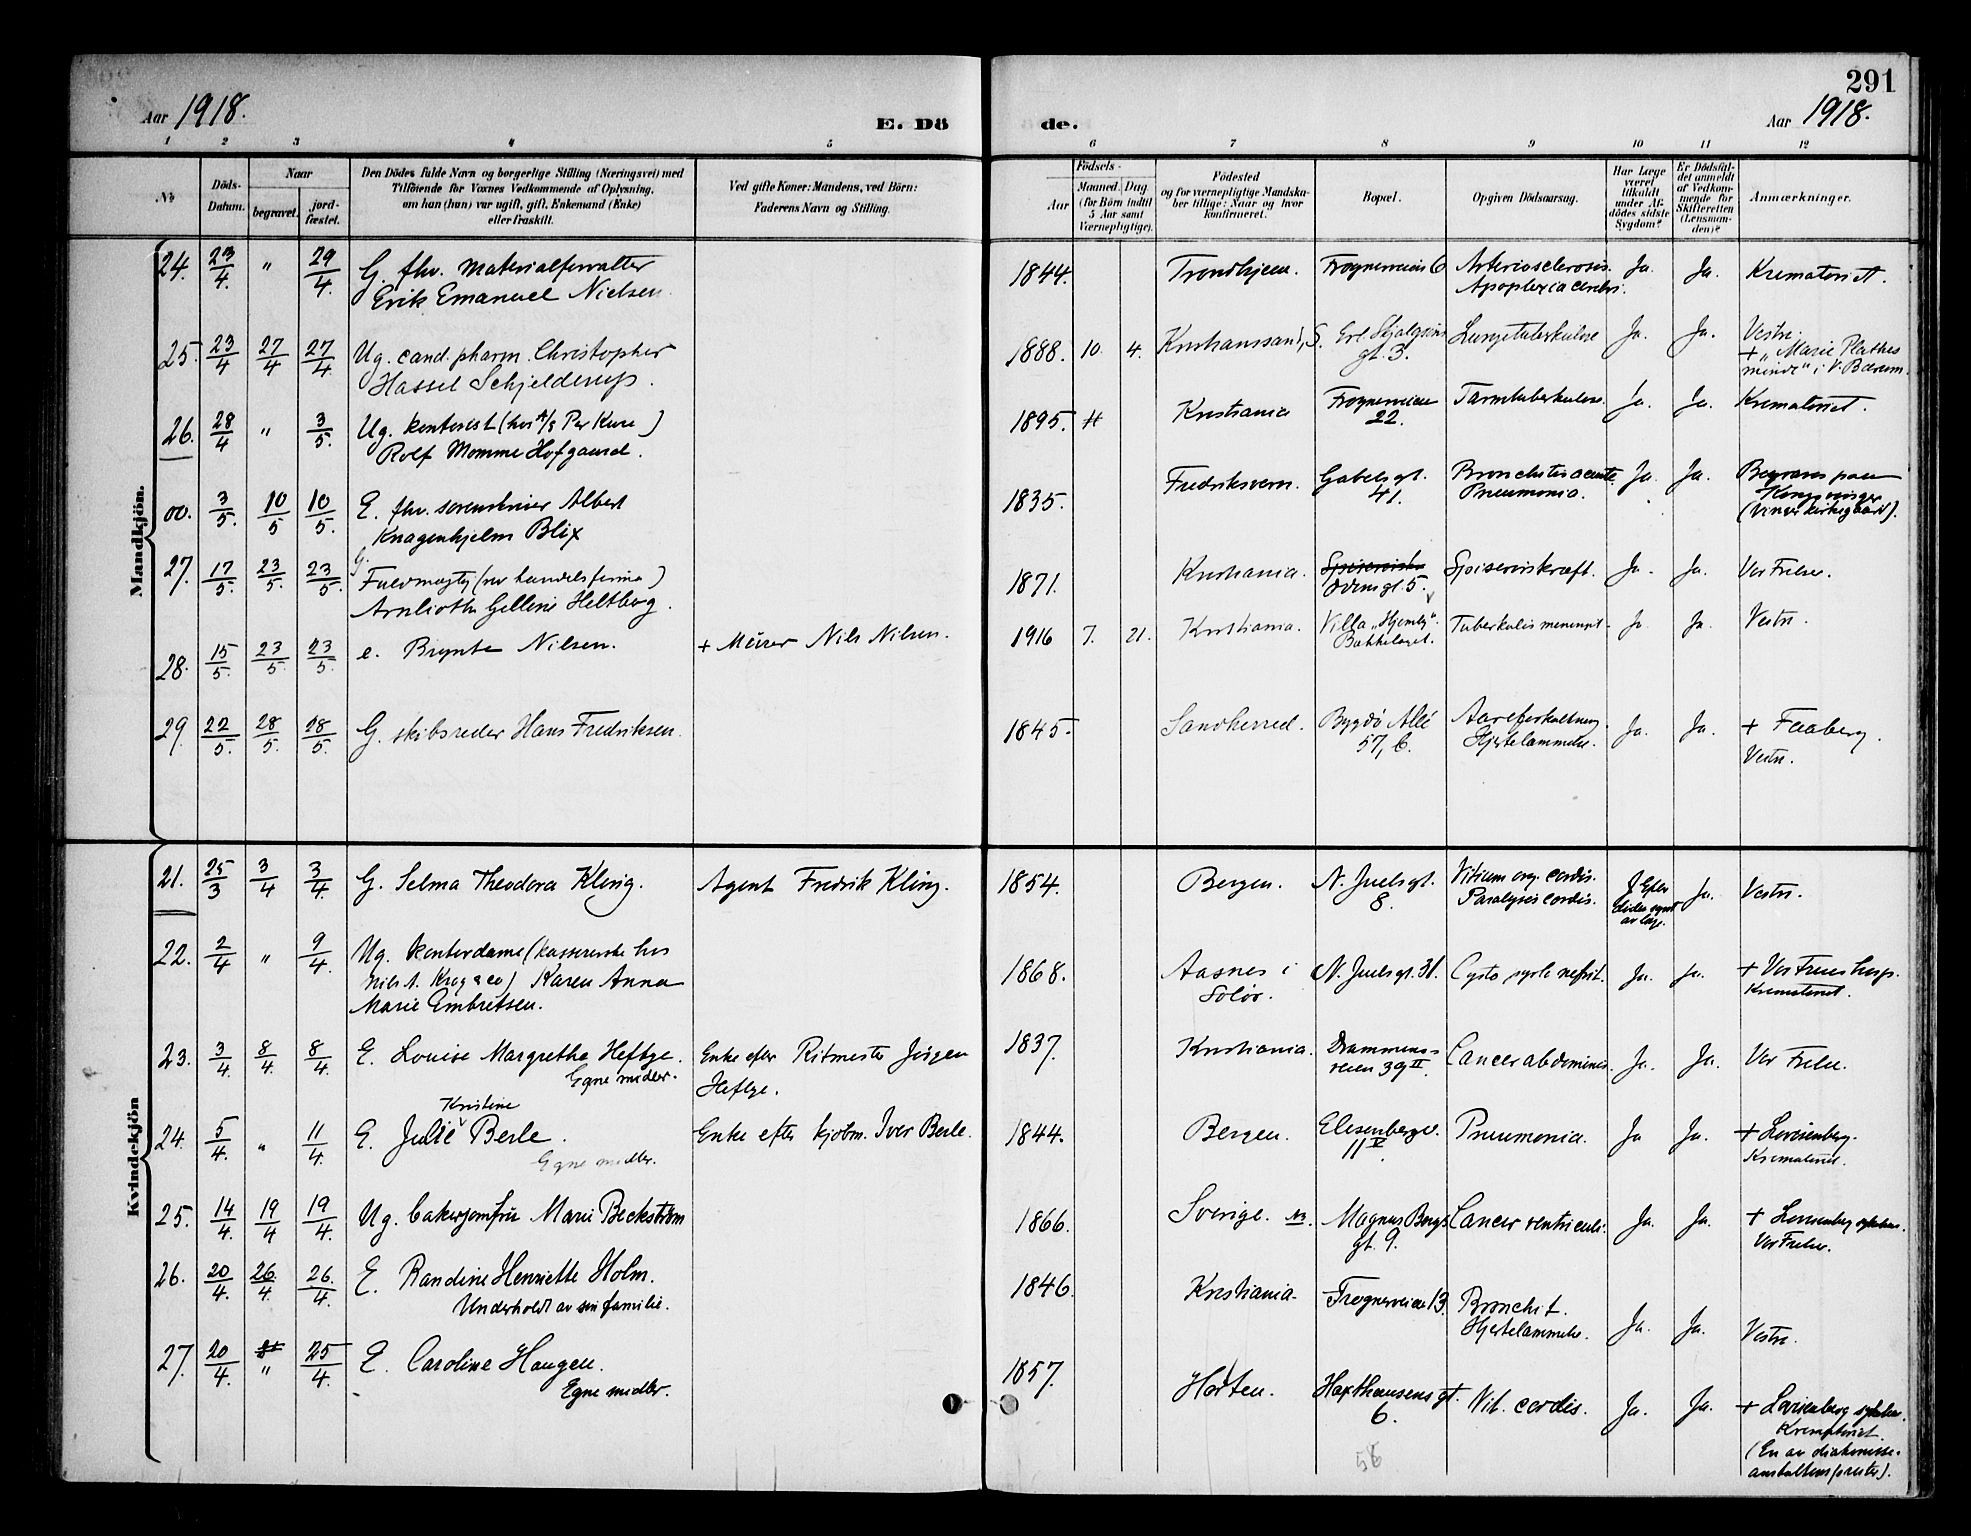 291
Aar 1918.
E. Dö
de.
Aar 1918.
1 2 3 4 5 6 7 8 9 10 11 12
No
Döds-
Datum.
Naar
begravet.
jord-
fæstet.
Den Dödes fulde Navn og borgerlige Stilling (Næringsvei) med
Tilföiende for Voxnes Vedkommende af Oplysning,
om han (hun) var ugift, gift, Enkemand (Enke)
eller fraskilt.
Ved gifte Koner: Mandens, ved Börn:
Faderens Navn og Stilling.
Födsels-
Aar
Maaned. Dag
(for Börn indtil
5 Aar samt
Værnepligtige).
Födested
og for værnepligtige Mandska-
ber tillige: Naar og hvor
konfirmeret.
Bopæl.
Opgiven Dödsaarsag.
Har Læge
været
tilkaldt
under Af-
dödes sidste
Sygdom?
Er Dödsfal-
det anmeldt
af Vedkom-
mende for
Skifteretten
(Lensman-
den)?
Anmærkninger.
Mandkjön.
24. 23/4. " 29/4. G. fhv. materialforvalter
Erik Emanuel Nielsen.
1844. Trondhjem. Frognerveien 6 Arteriosclerosis. Ja. Ja. Krematoriet.
Apoplexia cerebri.
25. 23/4 27/4 27/4. Ug. cand. pharm. Christopher
Hassel Schjelderup.
1888. 10. 4. Kristianssand, S. Erl. Skjalgsøns Lungetuberkulose Ja. Ja. Vestre.
gt. 3.
+ "Marie Plathes
minde" i V. Bærum.
26. 28/4 " 3/5. Ug. kontorist (hos A/S Per Kure)
Rolf Momme Hofgaard.
1895. Kristiania Frognerveien Tarmtuberkulose. Ja. Ja. Krematoriet.
22.
00. 3/5. 10/5 10/5. E. fhv. sorenskriver Albert
Knagenhjelm Blix
1835. Fredriksvern. Gabels gt. Bronchitis acuta. Ja. Ja. Begraves paa
41. Pneumonia. Kongsvinger
(Vinger kirkegaard).
27. 17/5. 23/5. 23/5. G.
Fuldmægtig (ved handelsfirma)
Arnlioth Gelline Heltberg.
1871. Kristiania. Spiserørskræft. Ja. Ja. Vor Frelser.
Odins gt. 5.
28. 15/5. 23/5. 23/5. e. Brynte Nilsen. + Murer Nils Nilsen.
1916 7. 21. Kristiania. Villa "Hjemly". Tuberkuløs meningit. Ja. Ja. Vestre.
Bækkelaget.
29. 22/5. 28/5. 28/5. G. skibsreder Hans Fredriksen.
1845. Sandherred. Bygdö Allé Aareforkalkning Ja. Ja. + Faaberg.
57, b. Hjertelammelse. Vestre.
Kvindekjön
21. 25/3 3/4 3/4. G. Selma Theodora Kling. Agent Fredrik Kling.
1854. Bergen. N. Juels gt. Vitium org. cordis. Ja. Vestre.
8. Paralysis cordis.
22. 2/4 " 9/4. Ug. kontordame (kassererske hos
Nils A. Krog & co) Karen Anna
Marie Embretsen.
1868. Aasnes i N. Juels gt. 31. Ja. Ja. + Vor Frues hosp.
Solør. Krematoriet.
23. 3/4. 8/4. 8/4. E. Louise Margrethe Heftye. Enke efter Ritmester Jørgen
Egne midler. Heftye.
1837. Kristiania. Drammens- Cancer abdominis. Ja. Ja. Vor Frelser.
veien 39 II.
24. 5/4. " 11/4. E. Julie Kristine Berle. Enke efter kjøbm. Iver Berle.
Egne midler.
1844. Bergen. Elisenbergv. Pneumonia. Ja Ja. + Lovisenberg.
11 V. Krematoriet.
25. 14/4. 19/4 19/4. Ug. bakerjomfru Marie Beckström
1866. Sverige. Magnus Bergs Cancer ventriculi. Ja. Ja. + Lovisenberg sykehus.
gt. 9. Vor Frelser.
26. 20/4. 26/4. 26/4. E. Randine Henriette Holm.
Underholdt av sin familie.
1846. Kristiania. Frognerveien 13. Bronchit. Ja. Ja. Vestre.
Hjertelammelse.
27. 20/4. " 25/4. E. Caroline Haugen.
Egne midler.
1857. Horten. Haxthausens gt. Vit. cordis. Ja. Ja. + Lovisenberg sykehus.
6. Krematoriet.
(En av diakonisse-
anstaltens prester).